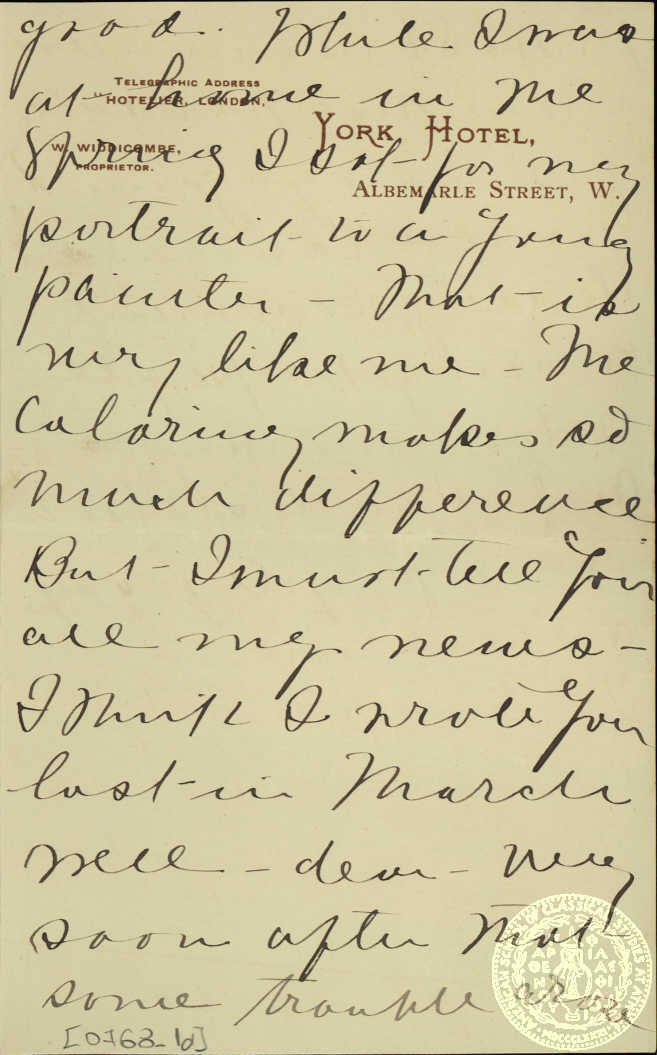 good. While I was
TELEGRAPHIC ADDRESS
"HOTELIER, LONDON,
at home in the
YORK HOTEL,
W. WIDDICOMBE,
PROPRIETOR.
Spring I sat for my
ALBEMARLE STREET, W.
portrait to a young
painter – that is
very like me – The
Coloring makes so
much difference
But – I must tell you
all my news –
I think I wrote you
last in March
well – dear – very
soon after that
some trouble arose
[0768_1d]